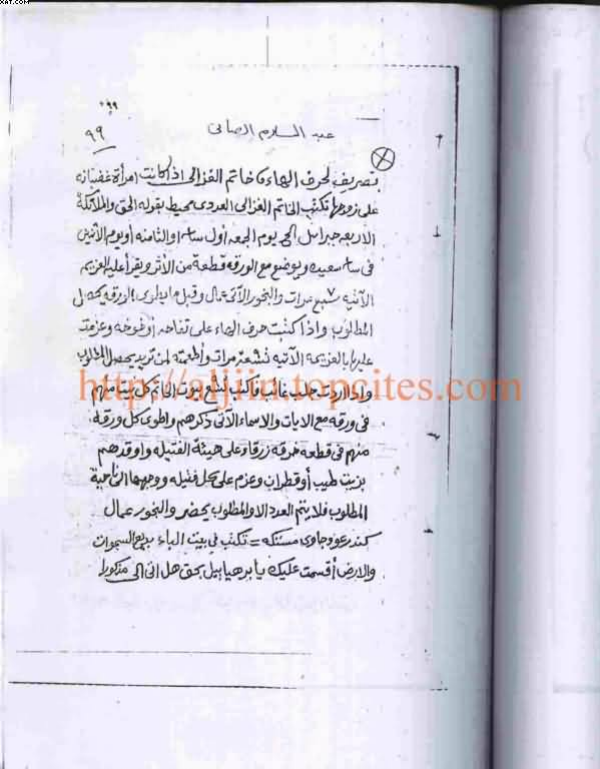 xat.com
٩٩
٩٩
عبد السلام
تصريف لحرف الهاء خاتم الغزالى اذا كانت امرأة غضبانه
على زوجها تكتب الخاتم الغزالى العددى محيط بقوله الحق والملائكة
الاربعه جبرايل الخ يوم الجمعه أول ساعه او الثامنه أو يوم الأثنين
فى ساعه سعيده ويوضع مع الورقه قطعة من الأثر ويقرأ عليه العزيمه
الآتيه سبع مرات والبخور الآتى عمال الورقه
المطلوب واذا كتبت حرف الهاء على تفاحه أو خوخه وعزمت
عليها بالعزيمه الآتيه تسعة مرات وأطعمته لمن تريد يحصل المطلوب
واذا اردت جلب غائب فاكتب تسع بيوت الخاتم كل بيت منهم
http://aljiin.topcites.com
فى ورقه مع الايات والاسماء الآتى ذكرهم واطوى كل ورقة
منهم فى قطعة خرقه زرقاء على هيئة الفتيله واوقدهم
بزيت طيب أو قطران وعزم على كل فتيله ووجهها الى ناحية
المطلوب فلا يتم العدد الا والمطلوب يحضر والبخور عمال
كندر وجاوى مستكه = تكتب فى بيت الباء بديع السموات
والارض أقسمت عليك يا برهياييل بحق هل اتى الى مذكورا